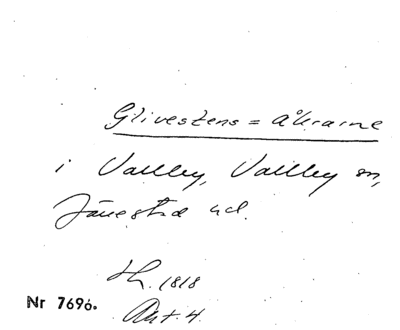 Glivestens = åkrarne
i Vallby, Vallby sn,
Järestad hd.
Hh. 1818
Akt. 4.
Nr 7696.